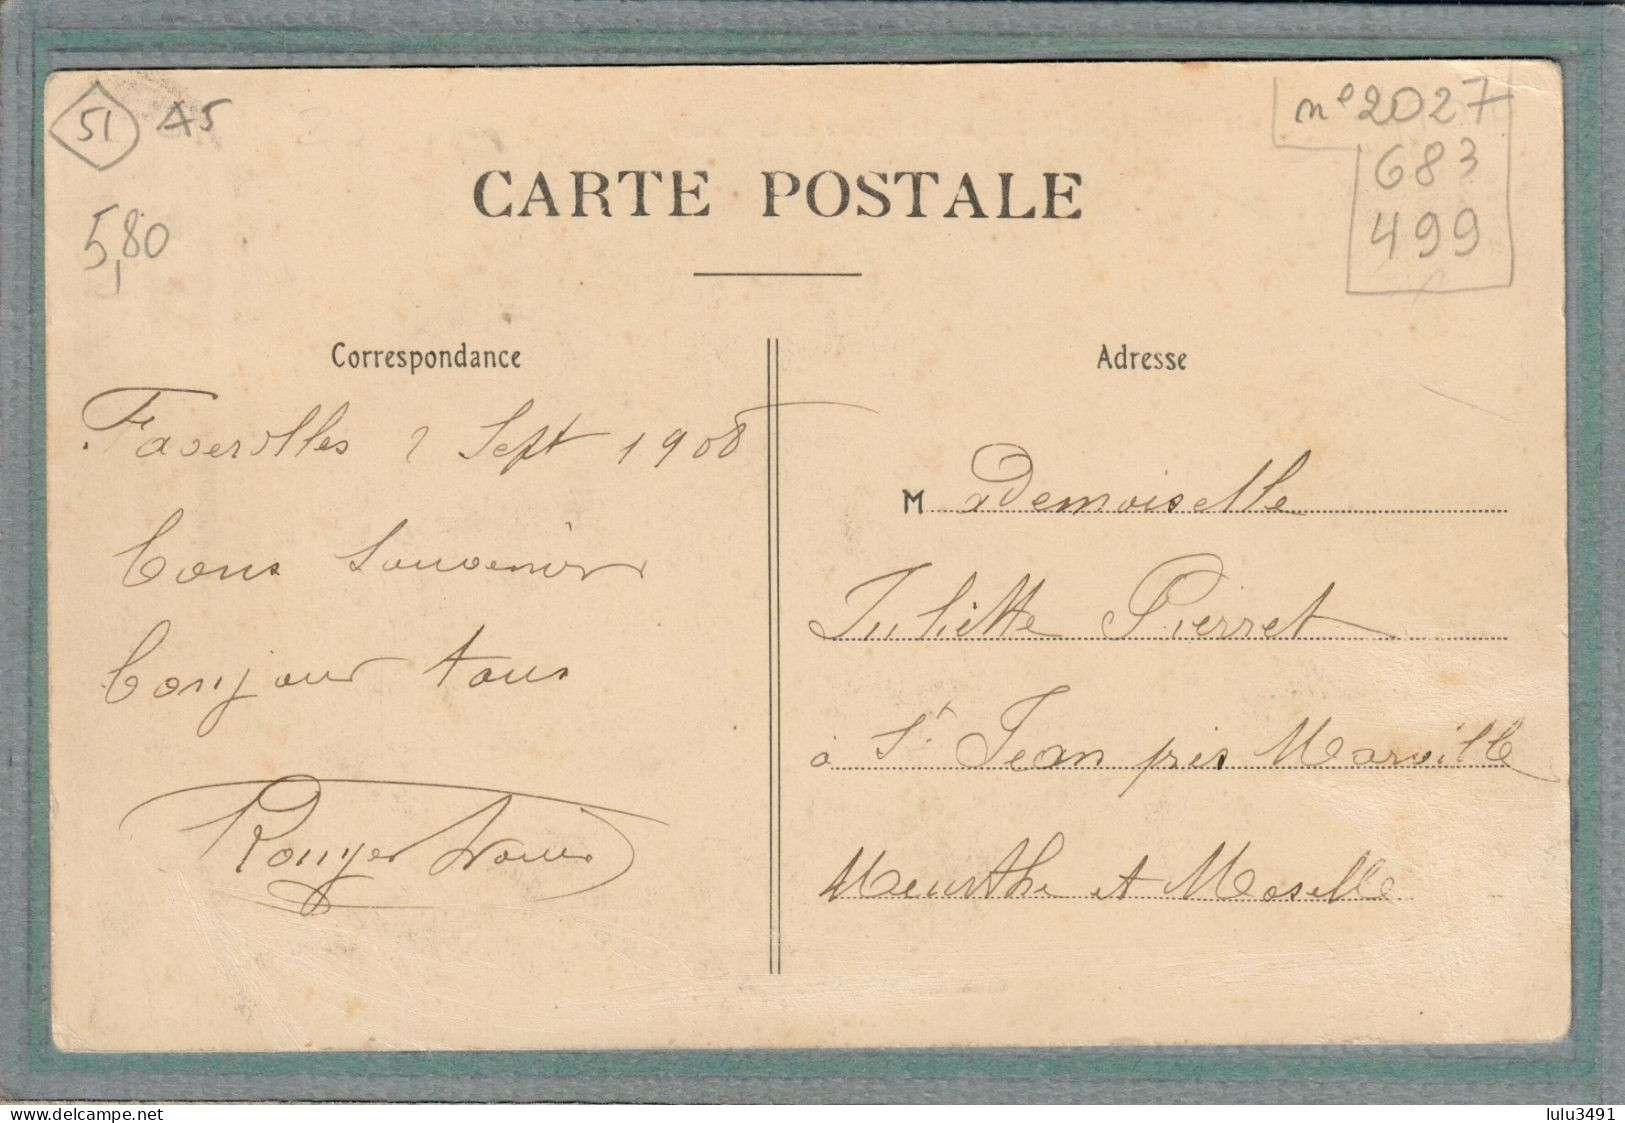 51 A5
5,80
n° 2027
683
499
CARTE POSTALE
Correspondance
Faverolles 2 Sept 1908
Bons Souvenirs
Bonjour tous
Rouyer
Adresse
Mademoiselle
Juliette Pierret
à St Jean près Marville
Meurthe et Moselle
www.delcampe.net
lulu3491